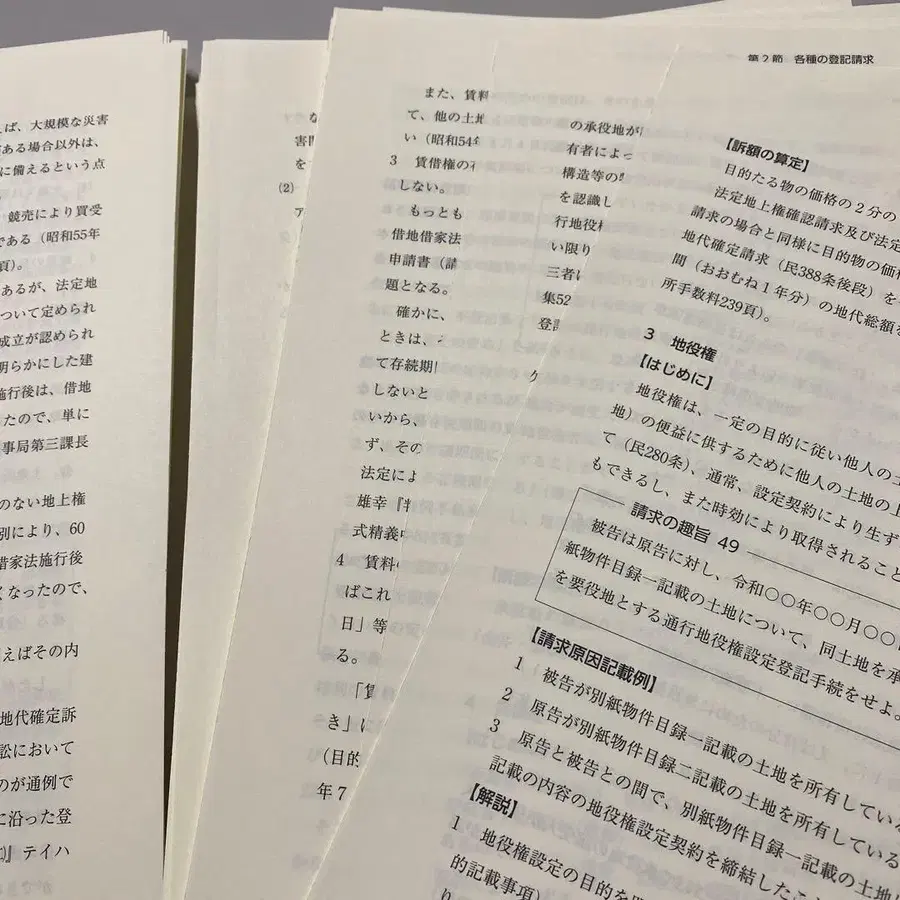 えば、大規模な災害
ある場合以外は、
に備えるという点
競売により買受
である（昭和55年
頁）。
あるが、法定地
ついて定められ
成立が認められ
明らかにした建
施行後は、借地
たので、単に
事局第三課長
のない地上権
別により、60
借家法施行後
くなったので、
えばその内
地代確定訴
訟において
のが通例で
に沿った登
』テイハ
な
害関
を
(2)
ア
また、賃料
て、他の土地
い（昭和54年
3　賃借権の
しない。
もっとも
借地借家法
申請書（請
題となる。
確かに、
ときは、
て存続期
しないと
いから、
ず、その
法定によ
雄幸『
式精義
4　賃料
ばこれ
日」等
る。
「賃
き」に
（目的
年7
の承役地が
有者によっ
構造等の
を認識し
行地役権
い限り
三者に
集52
登記
第2節　各種の登記請求
【訴額の算定】
目的たる物の価格の2分の
法定地上権確認請求及び法定
請求の場合と同様に目的物の価格
地代確定請求（民388条後段）を
間（おおむね1年分）の地代総額を
所手数料239頁）。
3　地役権
【はじめに】
地役権は、一定の目的に従い他人の土
地）の便益に供するために他人の土地の上
て（民280条）、通常、設定契約により生ず
もできるし、また時効により取得されること
請求の趣旨　49
被告は原告に対し、令和○○年○○月○○
紙物件目録一記載の土地について、同土地を承
を要役地とする通行地役権設定登記手続をせよ。
【請求原因記載例】
1　被告が別紙物件目録一記載の土地を所有してい
2　原告が別紙物件目録二記載の土地を所有している
3　原告と被告との間で、別紙物件目録一記載の土地
記載の内容の地役権設定契約を締結したこ
【解説】
1　地役権設定の目的を
的記載事項）
り